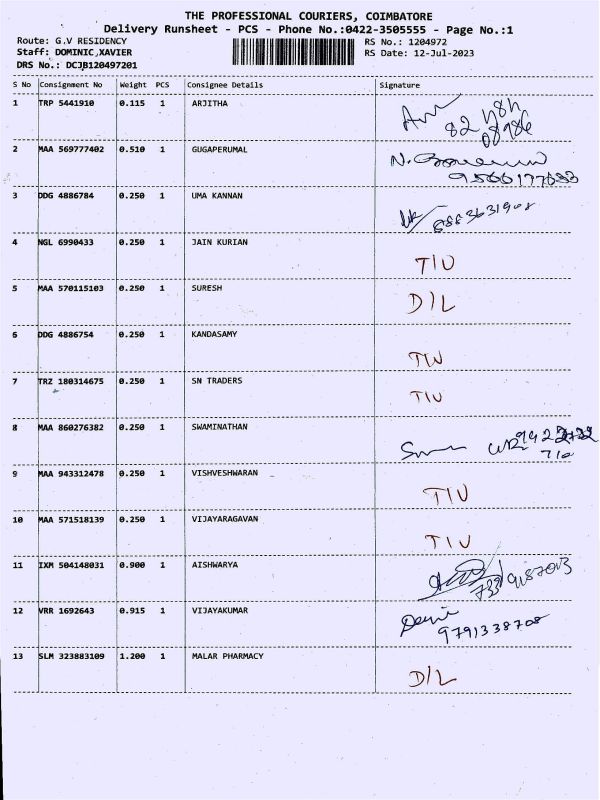 THE PROFESSIONAL COURIERS, COIMBATORE
Delivery Runsheet - PCS - Phone No.:0422-3505555 - Page No.:1
Route: G.V RESIDENCY RS No.: 1204972
Staff: DOMINIC,XAVIER RS Date: 12-Jul-2023
DRS No.: DCJB120497201
S No Consignment No Weight PCS Consignee Details Signature
1 TRP 5441910 0.115 1 ARJITHA
2 MAA 569777402 0.510 1 GUGAPERUMAL
3 DDG 4886784 0.250 1 UMA KANNAN
4 NGL 6990433 0.250 1 JAIN KURIAN T/U
5 MAA 570115103 0.250 1 SURESH D/L
6 DDG 4886754 0.250 1 KANDASAMY T/U
7 TRZ 180314675 0.250 1 SN TRADERS T/U
8 MAA 860276382 0.250 1 SWAMINATHAN
9 MAA 943312478 0.250 1 VISHVESHWARAN T/U
10 MAA 571518139 0.250 1 VIJAYARAGAVAN T/U
11 IXM 504148031 0.900 1 AISHWARYA
12 VRR 1692643 0.915 1 VIJAYAKUMAR
9791338708
13 SLM 323883109 1.200 1 MALAR PHARMACY D/L